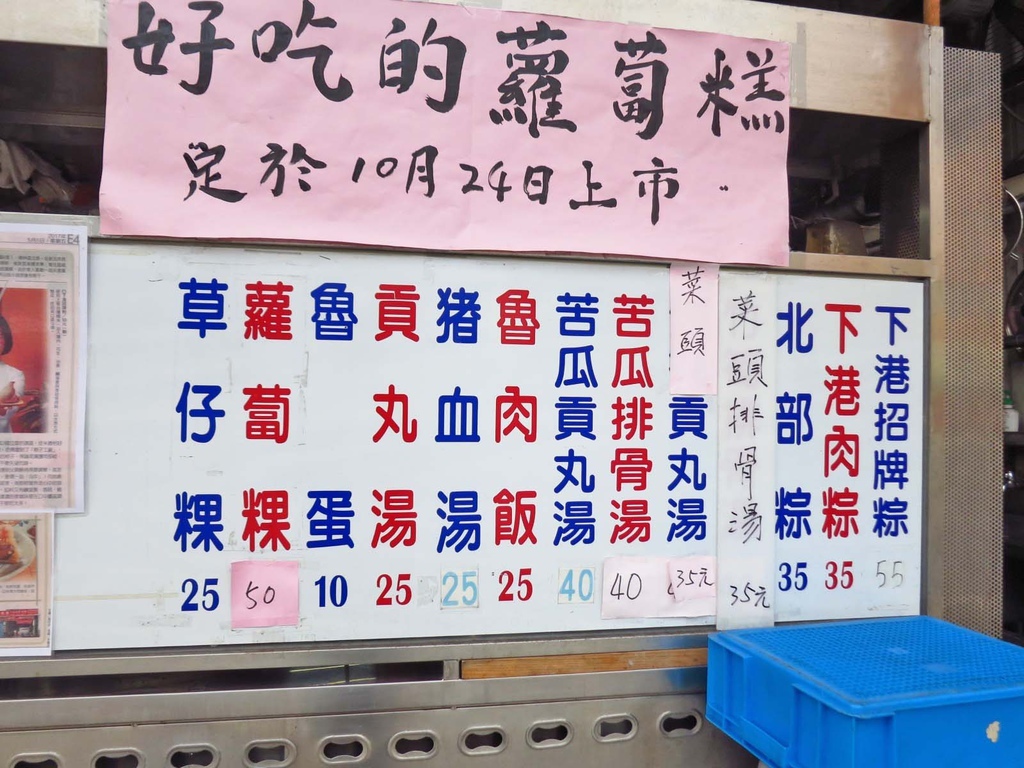 好吃的蘿蔔糕
定於10月24日上市.
下港招牌粽 55
下港肉粽 35
北部粽 35
菜頭排骨湯 35元
菜頭貢丸湯 35元
苦瓜排骨湯 40
苦瓜貢丸湯 40
魯肉飯 25
猪血湯 25
貢丸湯 25
魯蛋 10
蘿蔔粿 50
草仔粿 25
E4